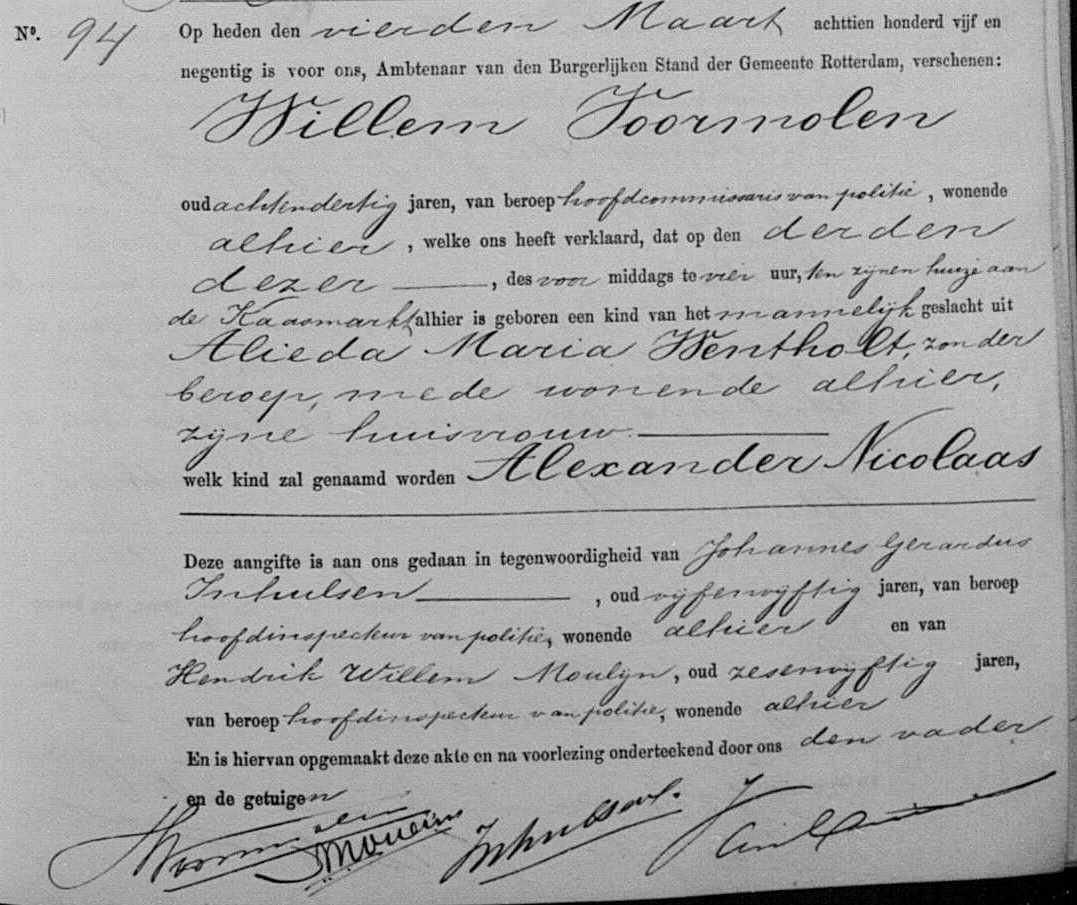 No. 94 Op heden den vierden Maart achttien honderd vijf en
negentig is voor ons, Ambtenaar van den Burgerlijken Stand der Gemeente Rotterdam, verschenen:
Willem Voormolen
oud achtendertig jaren, van beroep hoofdcommissaris van politie, wonende
alhier, welke ons heeft verklaard, dat op den derden
dezer, des voor middags te vier uur, ten zijnen huize aan
de Kaasmarkt alhier is geboren een kind van het mannelijk geslacht uit
Alieda Maria Wentholt, zonder
beroep, mede wonende alhier,
zijne huisvrouw
welk kind zal genaamd worden Alexander Nicolaas
Deze aangifte is aan ons gedaan in tegenwoordigheid van Johannes Gerardus
Inhulsen, oud vijfenvijftig jaren, van beroep
hoofdinspecteur van politie, wonende alhier en van
Hendrik Willem Moulijn, oud zesenvijftig jaren,
van beroep hoofdinspecteur van politie, wonende alhier
En is hiervan opgemaakt deze akte en na voorlezing onderteekend door ons den vader
en de getuigen
Voormolen Moulijn Inhulsen